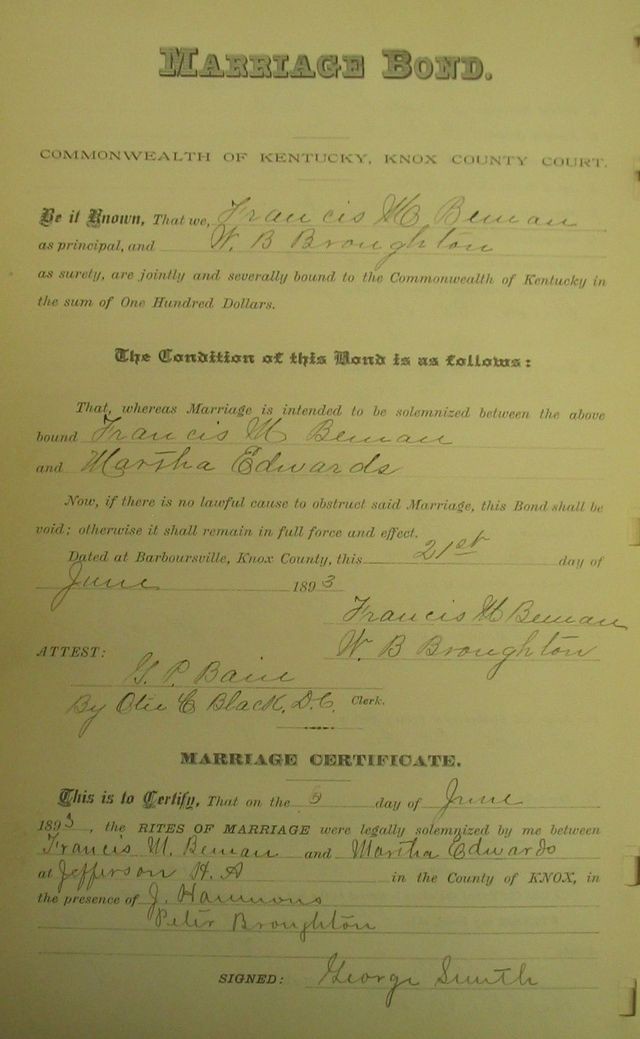 MARRIAGE BOND.
COMMONWEALTH OF KENTUCKY, KNOX COUNTY COURT.
Be it Known, That we, Francis M Beman
as principal, and W. B Broughton
as surety, are jointly and severally bound to the Commonwealth of Kentucky in
the sum of One Hundred Dollars.
The Condition of this Bond is as follows:
That, whereas Marriage is intended to be solemnized between the above
bound Francis M Beman
and Martha Edwards
Now, if there is no lawful cause to obstruct said Marriage, this Bond shall be
void; otherwise it shall remain in full force and effect.
Dated at Barboursville, Knox County, this 21st day of
June 1893
Francis M Beman
ATTEST: W. B Broughton
G. P. Bain
By Otie C Black, D.C. Clerk.
MARRIAGE CERTIFICATE.
This is to Certify, That on the day of June
1893, the RITES OF MARRIAGE were legally solemnized by me between
Francis M. Beman and Martha Edwards
at Jefferson H. A in the County of KNOX, in
the presence of J. Hammons
Peter Broughton
SIGNED: George Smith